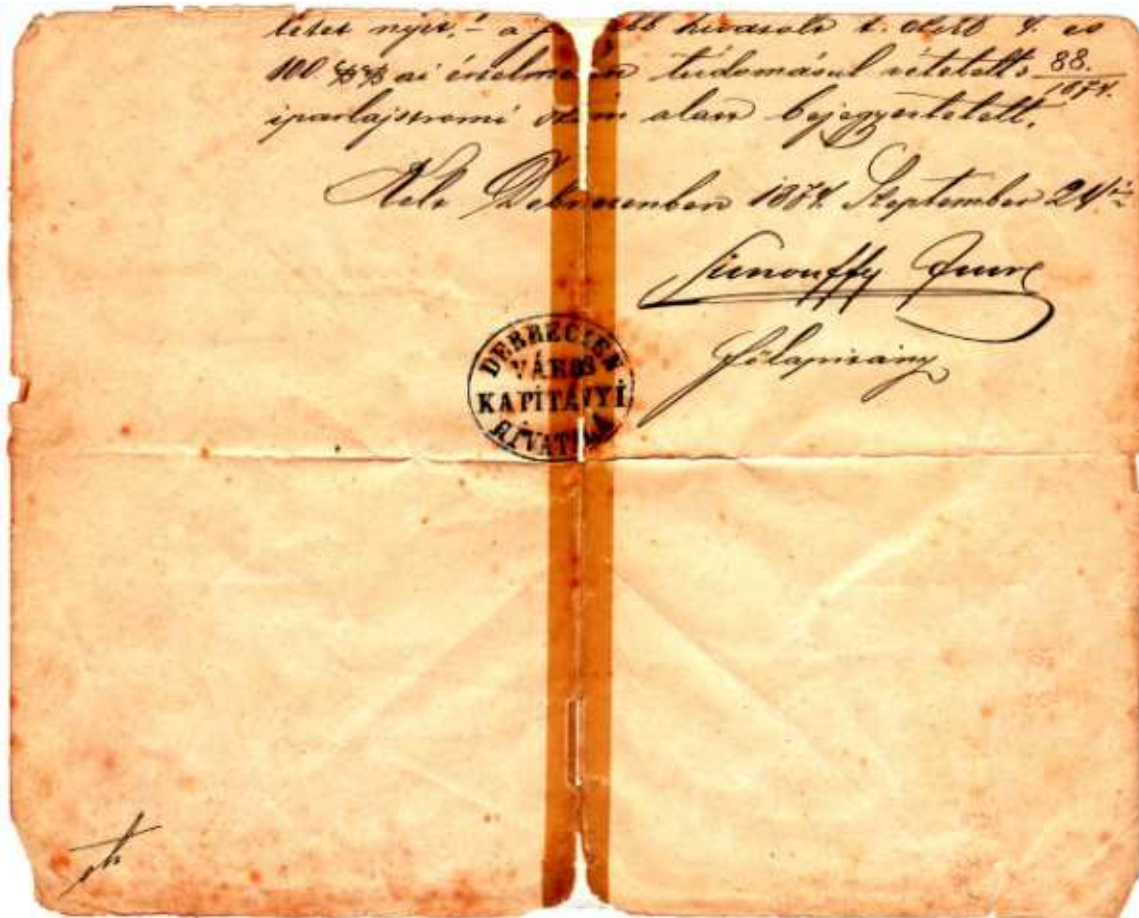 letet nyit, - a f bb hivatolt t. cikk 4. es
100 §§ ai értelmében tudomásul vétetett s 88.
1874.
iparlajstromi szám alatt bejegyeztetett.
Kelt Debreczenben 1874. September 24én
Simonffy Imre
főkapitány
DEBRECZEN
VÁROS
KAPITÁNYI
HIVATALA